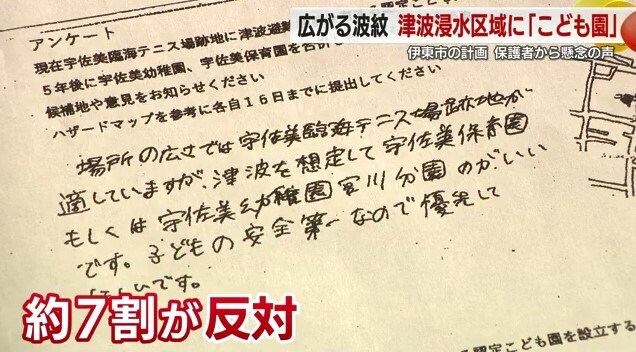 広がる波紋 津波浸水区域に「こども園」
伊東市の計画 保護者から懸念の声
アンケート
現在宇佐美臨海テニス場跡地に津波避
5年後に宇佐美幼稚園、宇佐美保育園を合
候補地や意見をお知らせください
ハザードマップを参考に各自16日までに提出してください
場所の広さでは宇佐美臨海テニス場跡地が
適していますが、津波を想定して宇佐美保育園
もしくは宇佐美幼稚園宮川分園のがいい
です。子どもの安全第一なので優先して
いです。
約7割が反対
認定こども園を設立する